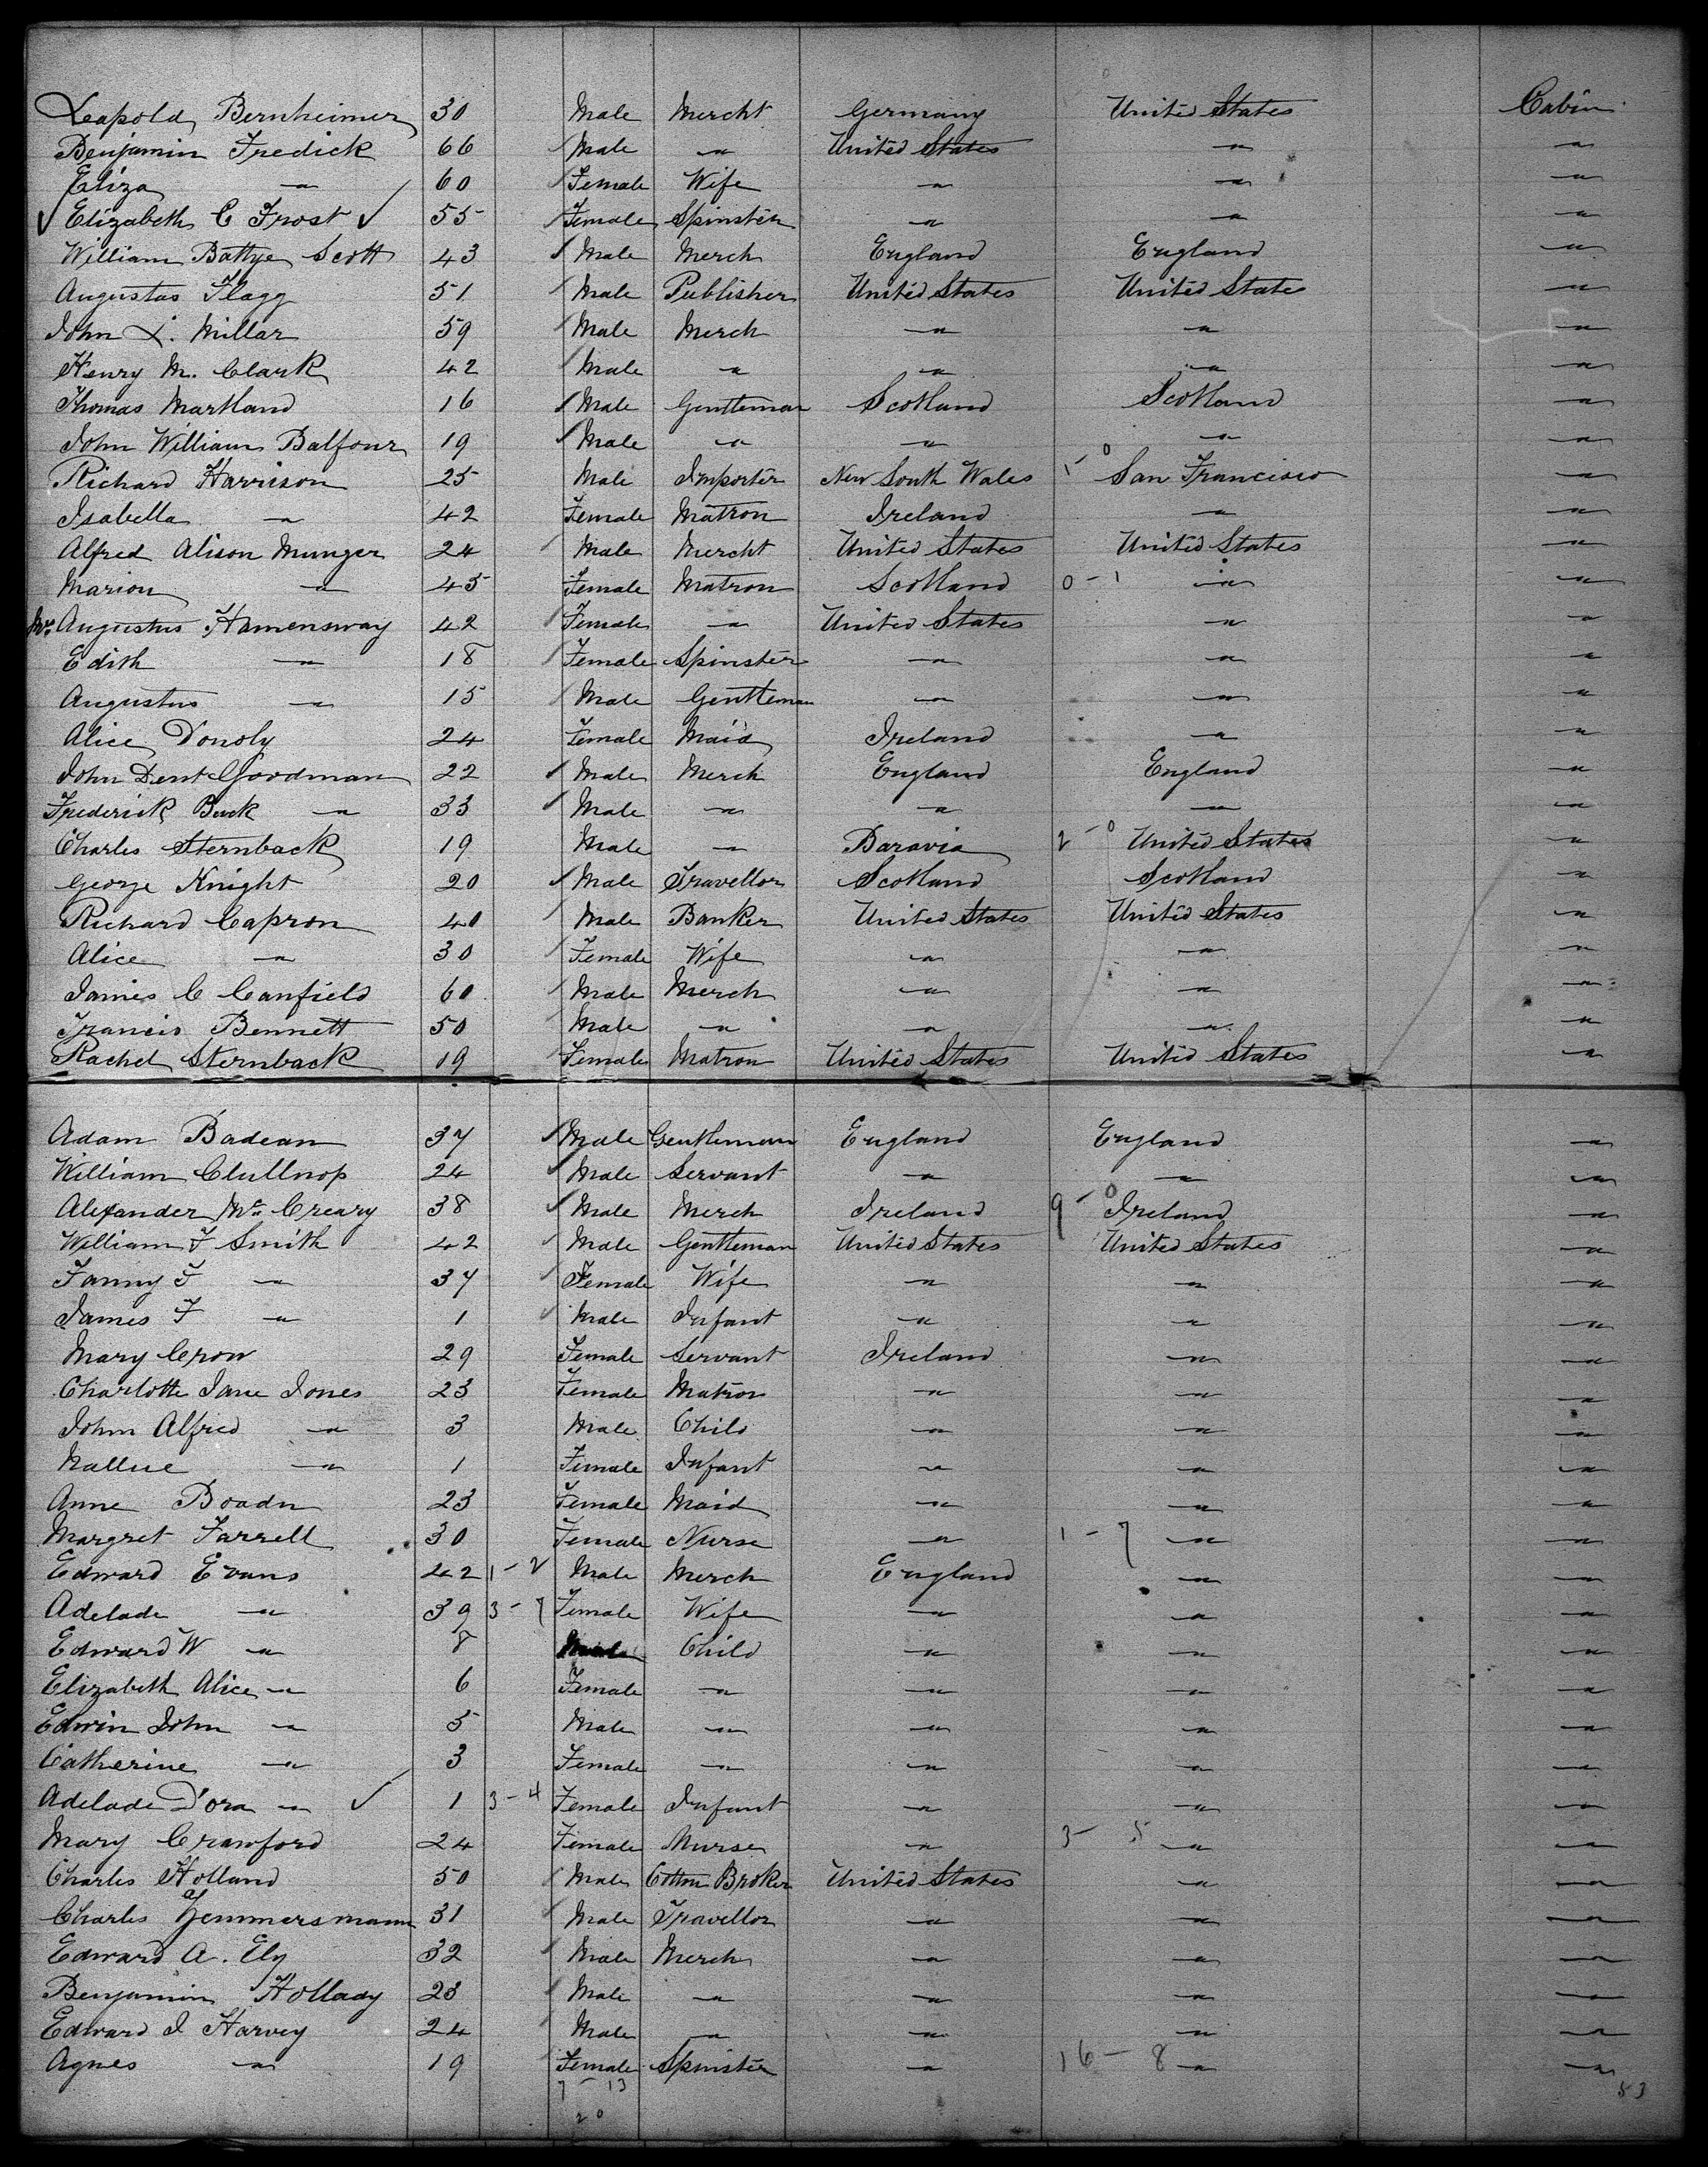 Leapold Bernheimer 30 Male Mercht Germany United States Cabin
Benjamin Fredick 66 Male " United States " "
Eliza " 60 Female Wife " " "
✓ Elizabeth C Frost ✓ 55 Female Spinster " " "
William Battye Scott 43 Male Merch England England "
Augustas Flagg 51 Male Publisher United States United State "
John L. Millar 59 Male Merch " " "
Henry M. Clark 42 Male " " " "
Thomas Markland 16 Male Gentleman Scotland Scotland "
John William Balfour 19 Male " " " "
Richard Harrison 25 Male Importer New South Wales 1 - 0 San Francisco "
Isabella " 42 Female Matron Ireland " "
Alfred Alison Munger 24 Male Mercht United States United States "
Marion " 45 Female Matron Scotland 0 - 1 " "
Mrs Augustus Hamensway 42 Female " United States " "
Edith " 18 Female Spinster " " "
Augustus " 15 Male Gentleman " " "
Alice Donoly 24 Female Maid Ireland " "
John Dent Goodman 22 Male Merch England England "
Frederick Buck " 33 Male " " " "
Charles Sternback 19 Male " Baravia 2 - 0 United States "
George Knight 20 Male Travellor Scotland Scotland "
Richard Capron 40 Male Banker United States United States "
Alice " 30 Female Wife " " "
James C Canfield 60 Male Merch " " "
Francis Bennett 50 Male " " " "
Rachel Sternback 19 Female Matron United States United States "
Adam Badeau 37 Male Gentleman England England "
William 24 Male Servant " " "
Alexander Mc Creary 38 Male Merch Ireland 9 - 0 Ireland "
William F Smith 42 Male Gentleman United States United States "
Fanny F " 37 Female Wife " " "
James F " 1 Male Infant " " "
Mary Crow 29 Female Servant Ireland " "
Charlotte Jane Jones 23 Female Matron " " "
John Alfred " 3 Male Child " " "
" 1 Female Infant " " "
Anne 23 Female Maid " " "
Margret Farrell 30 Female Nurse " 1 - 7 " "
Edward Evans 42 1 - 2 Male Merch England " "
Adelade " 39 3 - 7 Female Wife " " "
Edward W " 8 Male Child " " "
Elizabeth Alice " 6 Female " " " "
Edwin John " 5 Male " " " "
Catherine " 3 Female " " " "
Adelade D'ora " ✓ 1 3 - 4 Female Infant " " "
Mary Crawford 24 Female Nurse " 3 - 5 " "
Charles Holland 50 Male Cotton Broker United States " "
Charles 31 Male Travellor " " "
Edward A. Ely 32 Male Merch " " "
Benjamin Hollady 23 Male " " " "
Edward J Harvey 24 Male " " " "
Agnes " 19 Female Spinster " 16 - 8 " "
7 - 13 53
20